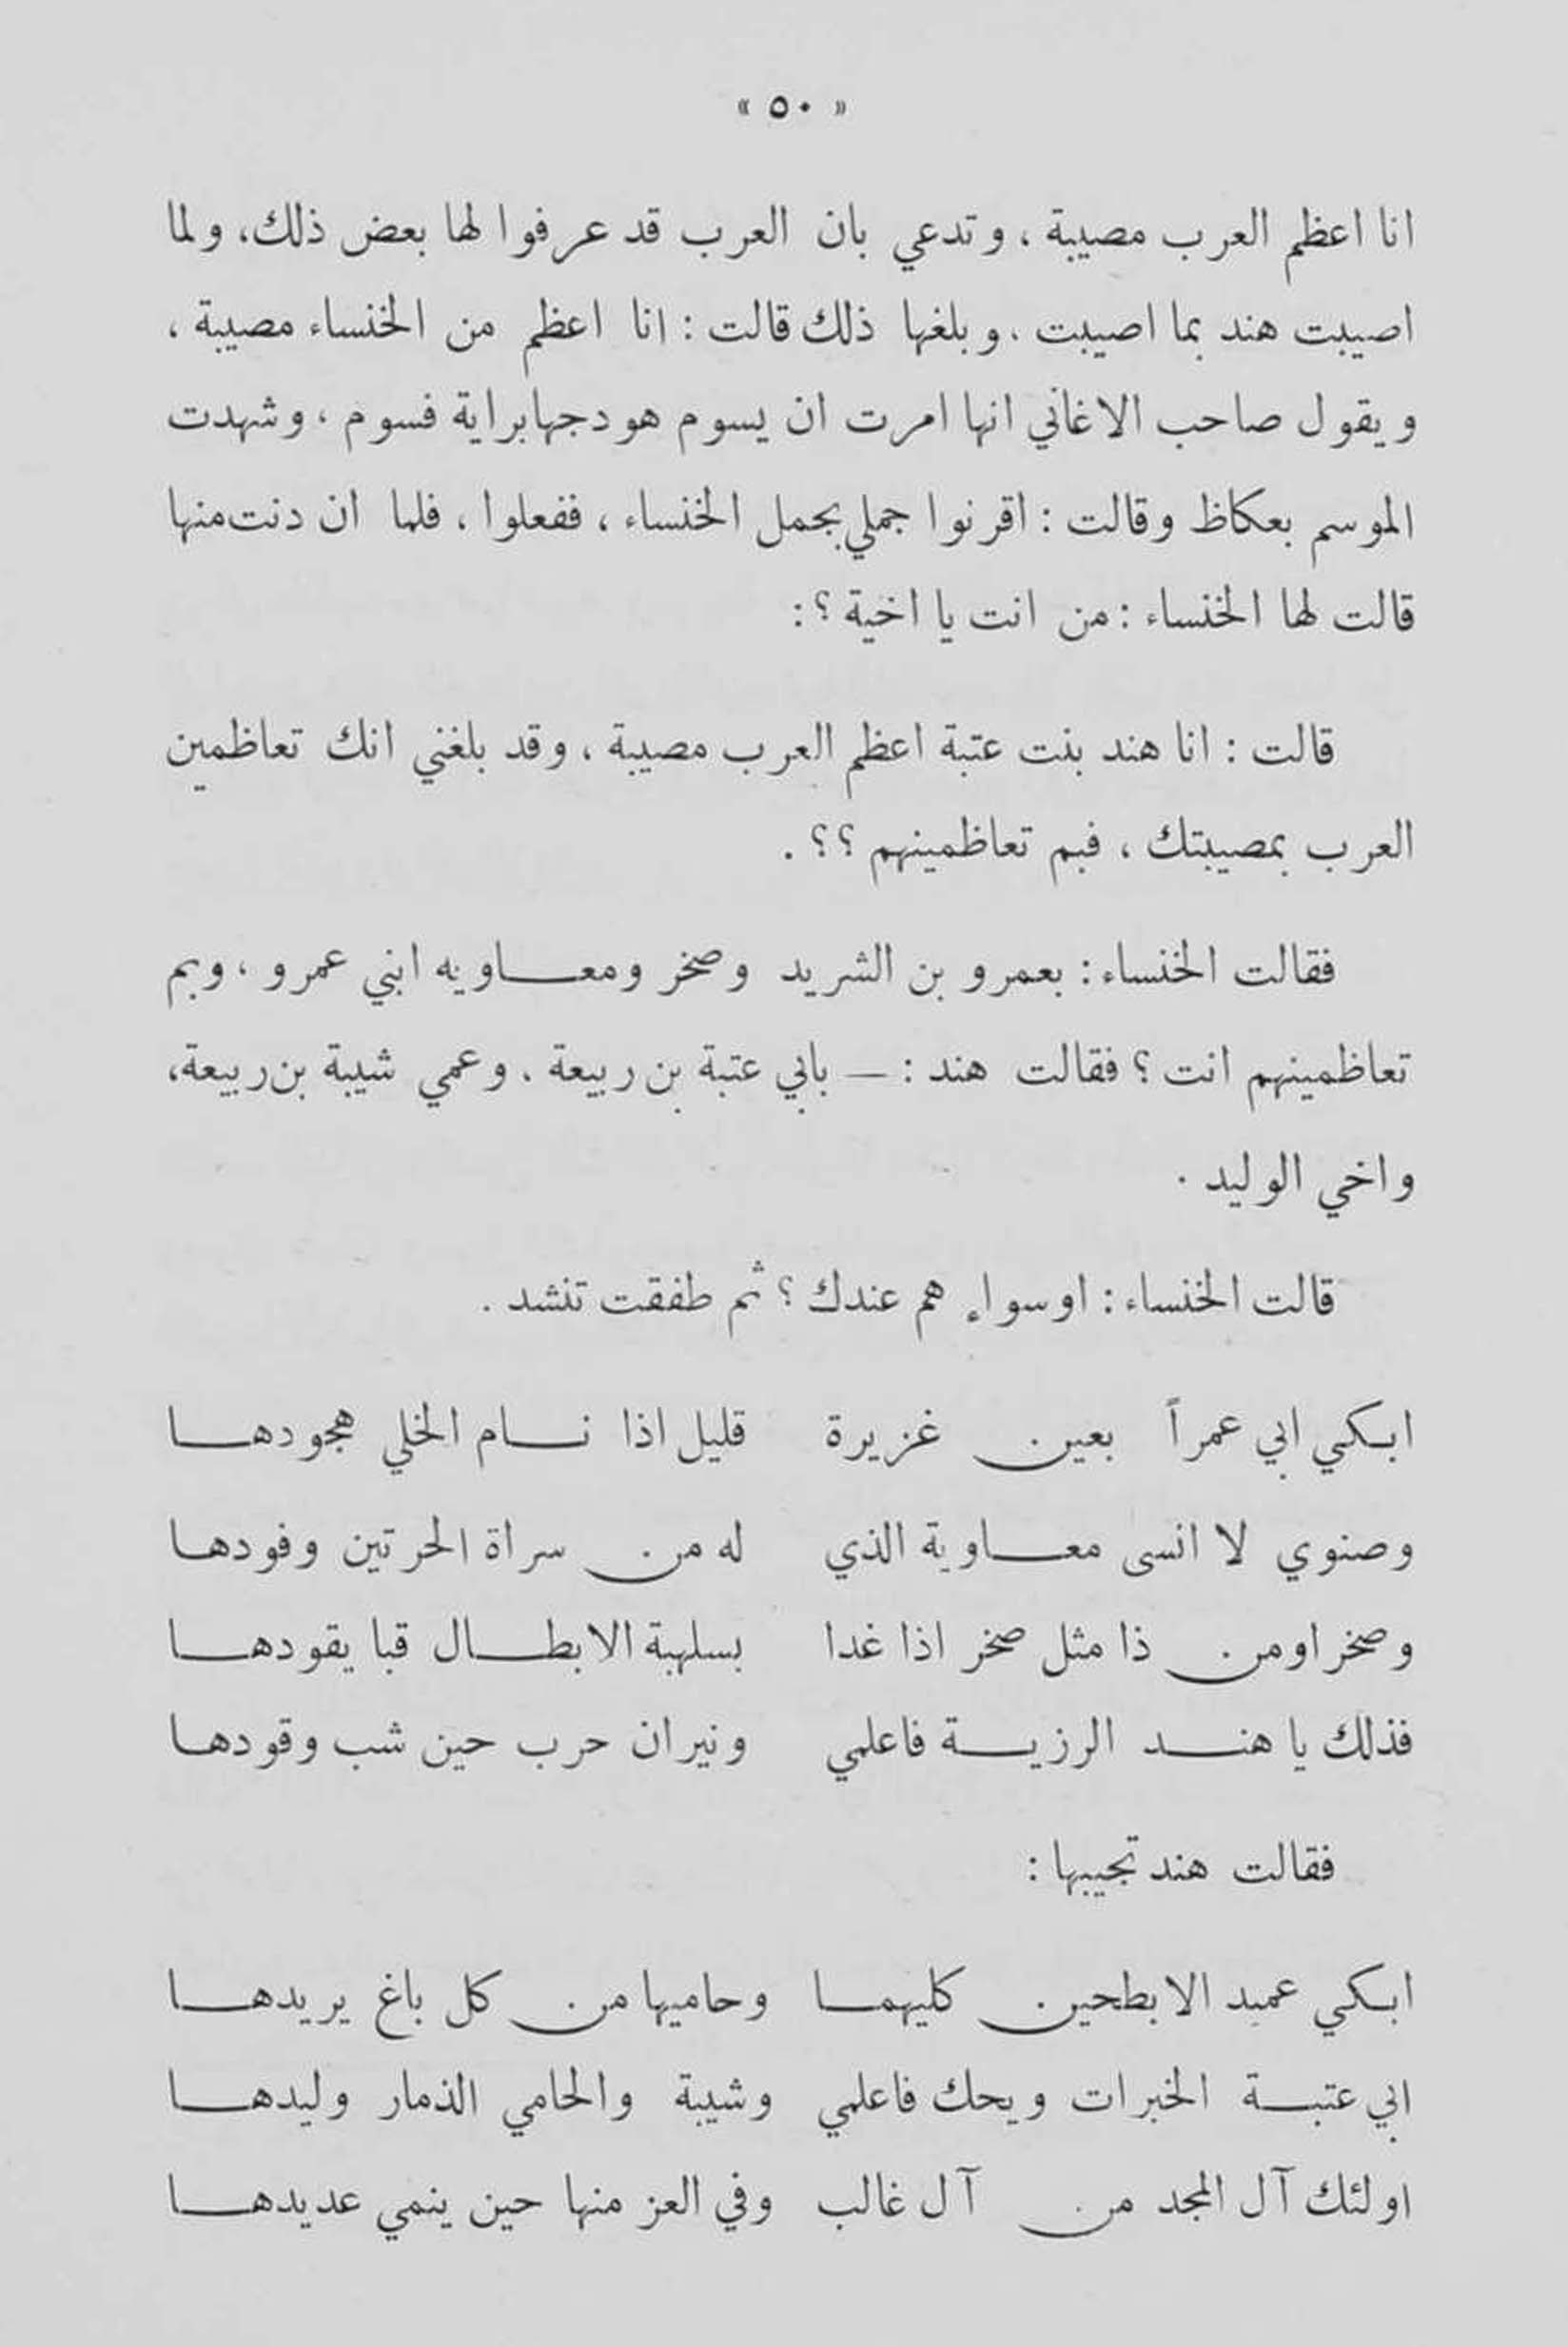 « ٥٠ »
انا اعظم العرب مصيبة ، وتدعي بان العرب قد عرفوا لها بعض ذلك، ولما
اصيبت هند بما اصيبت . وبلغها ذلك قالت : انا اعظم من الخنساء مصيبة ،
ويقول صاحب الاغاني انها امرت ان يسوم هودجها براية فسوم ، وشهدت
الموسم بعكاظ وقالت : اقرنوا جملي بجمل الخنساء ، ففعلوا ، فلما ان دنت منها
قالت لها الخنساء : من انت يا اخية ؟ :
قالت : انا هند بنت عتبة اعظم العرب مصيبة ، وقد بلغني انك تعاظمين
العرب بمصيبتك ، فبم تعاظمينهم ؟؟ .
فقالت الخنساء : بعمرو بن الشريد وصخر ومعـاويه ابني عمرو ، وبم
تعاظمينهم انت ؟ فقالت هند : — بابي عتبة بن ربيعة . وعمي شيبة بن ربيعة،
واخي الوليد .
قالت الخنساء : اوسواء هم عندك ؟ ثم طفقت تنشد .
ابكي ابي عمراً بعين غزيرة قليل اذا نـام الخلي هجودهـا
وصنوي لا انسى معـاوية الذي له من سراة الحرتين وفودهـا
وصخرا ومن ذا مثل صخر اذا غدا بسلهبة الابطـال قبا يقودهـا
فذلك يا هنـد الرزيـة فاعلمي ونيران حرب حين شب وقودهـا
فقالت هند تجيبها :
ابكي عميد الابطحين كليهمـا وحاميها من كل باغ يريدهـا
ابي عتبـة الخيرات ويحك فاعلمي وشيبة والحامي الذمار وليدهـا
اولئك آل المجد من آل غالب وفي العز منها حين ينمي عديدهـا